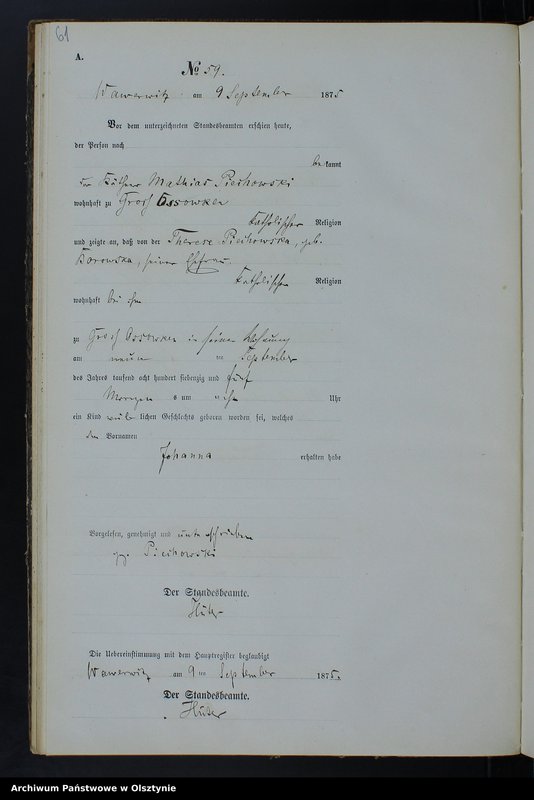 61
A.
No 59.
Wawerwitz am 9 September 1875
Vor dem unterzeichneten Standesbeamten erschien heute,
der Person nach
bekannt
der Käthner Mathias Piechowski
wohnhaft zu Groß Ossowken
katholischer Religion
und zeigte an, daß von der Therese Piechowska, geb.
Borowska, seiner Ehefrau
katholischer Religion
wohnhaft bei ihm
zu Groß Ossowken in seiner Wohnung
am neun ten September
des Jahres tausend acht hundert siebenzig und fünf
Morgens um Uhr
ein Kind weiblichen Geschlechts geboren worden sei, welches
den Vornamen
Johanna erhalten habe
Vorgelesen, genehmigt und unterschrieben
gez. Piechowski
Der Standesbeamte.
Die Uebereinstimmung mit dem Hauptregister beglaubigt
Wawerwitz am 9 ten September 1875.
Der Standesbeamte.
Archiwum Państwowe w Olsztynie